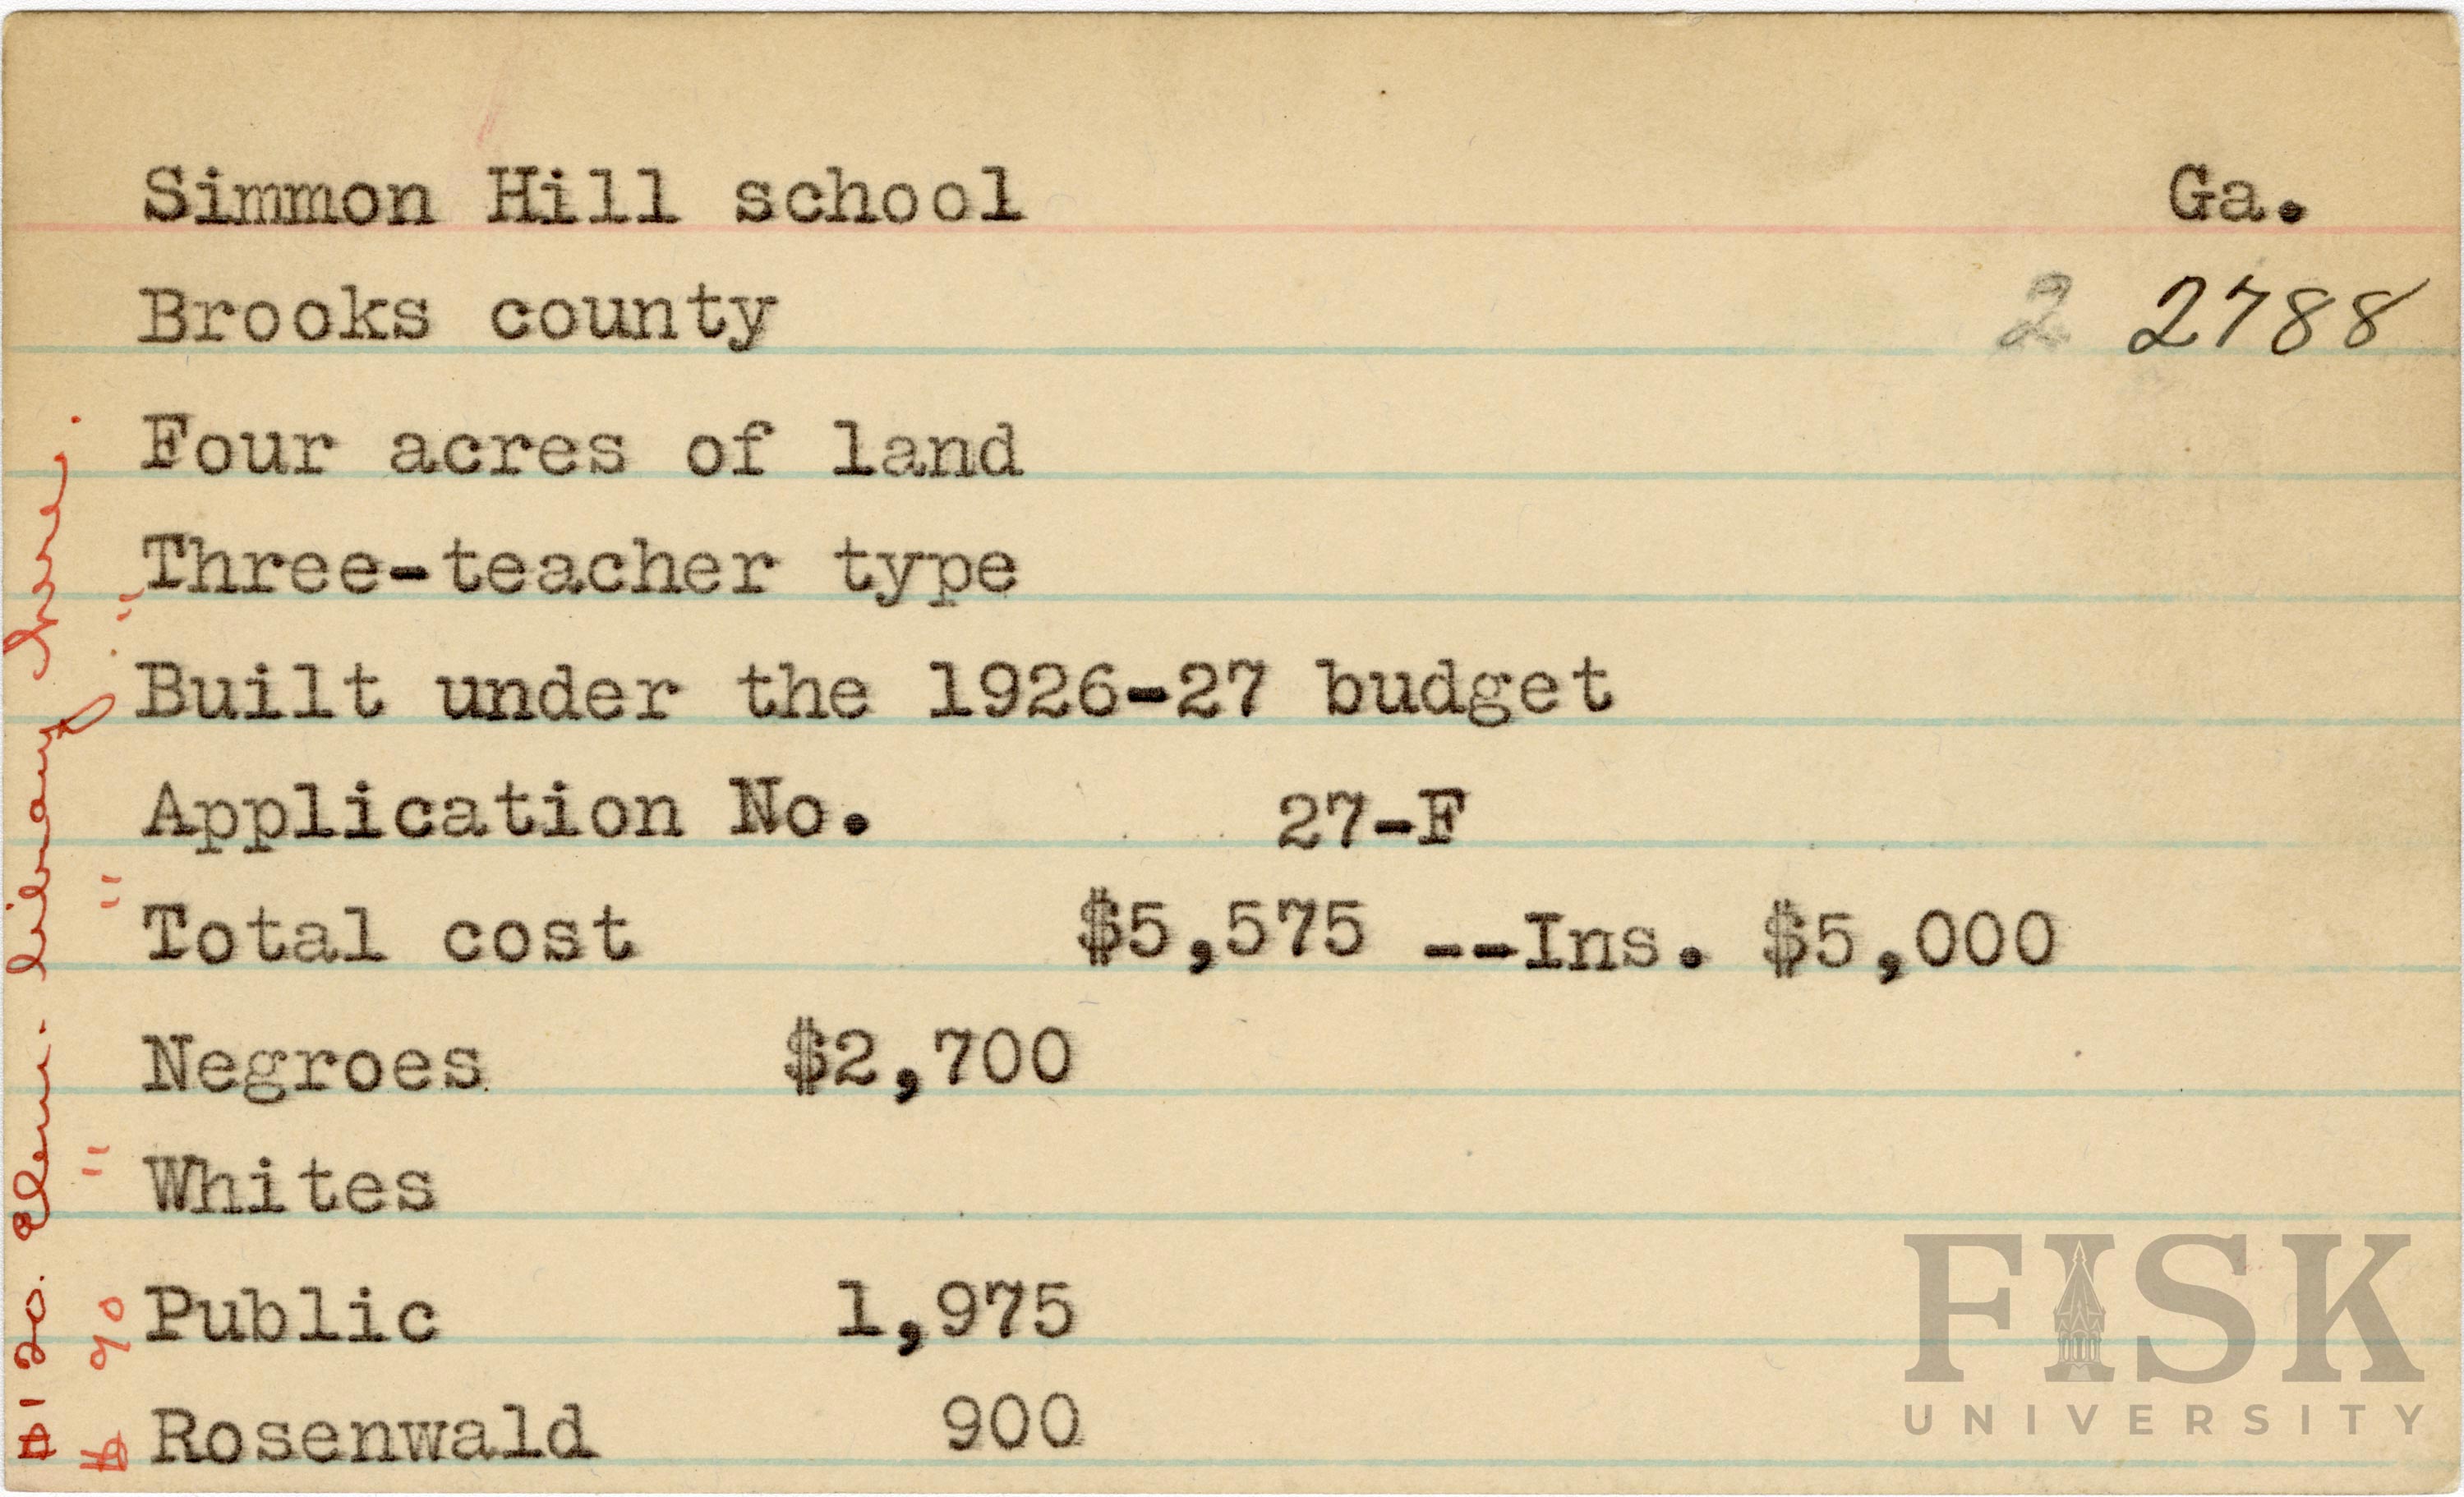 Simmon Hill school Ga.
Brooks county 2 2788
Four acres of land
Three-teacher type
Built under the 1926-27 budget
Application No. 27-F
Total cost $5,575 --Ins. $5,000
Negroes $2,700
Whites
Public 1,975
Rosenwald 900
$120. Elem. library here.
$ 90 " " "
FISK
UNIVERSITY